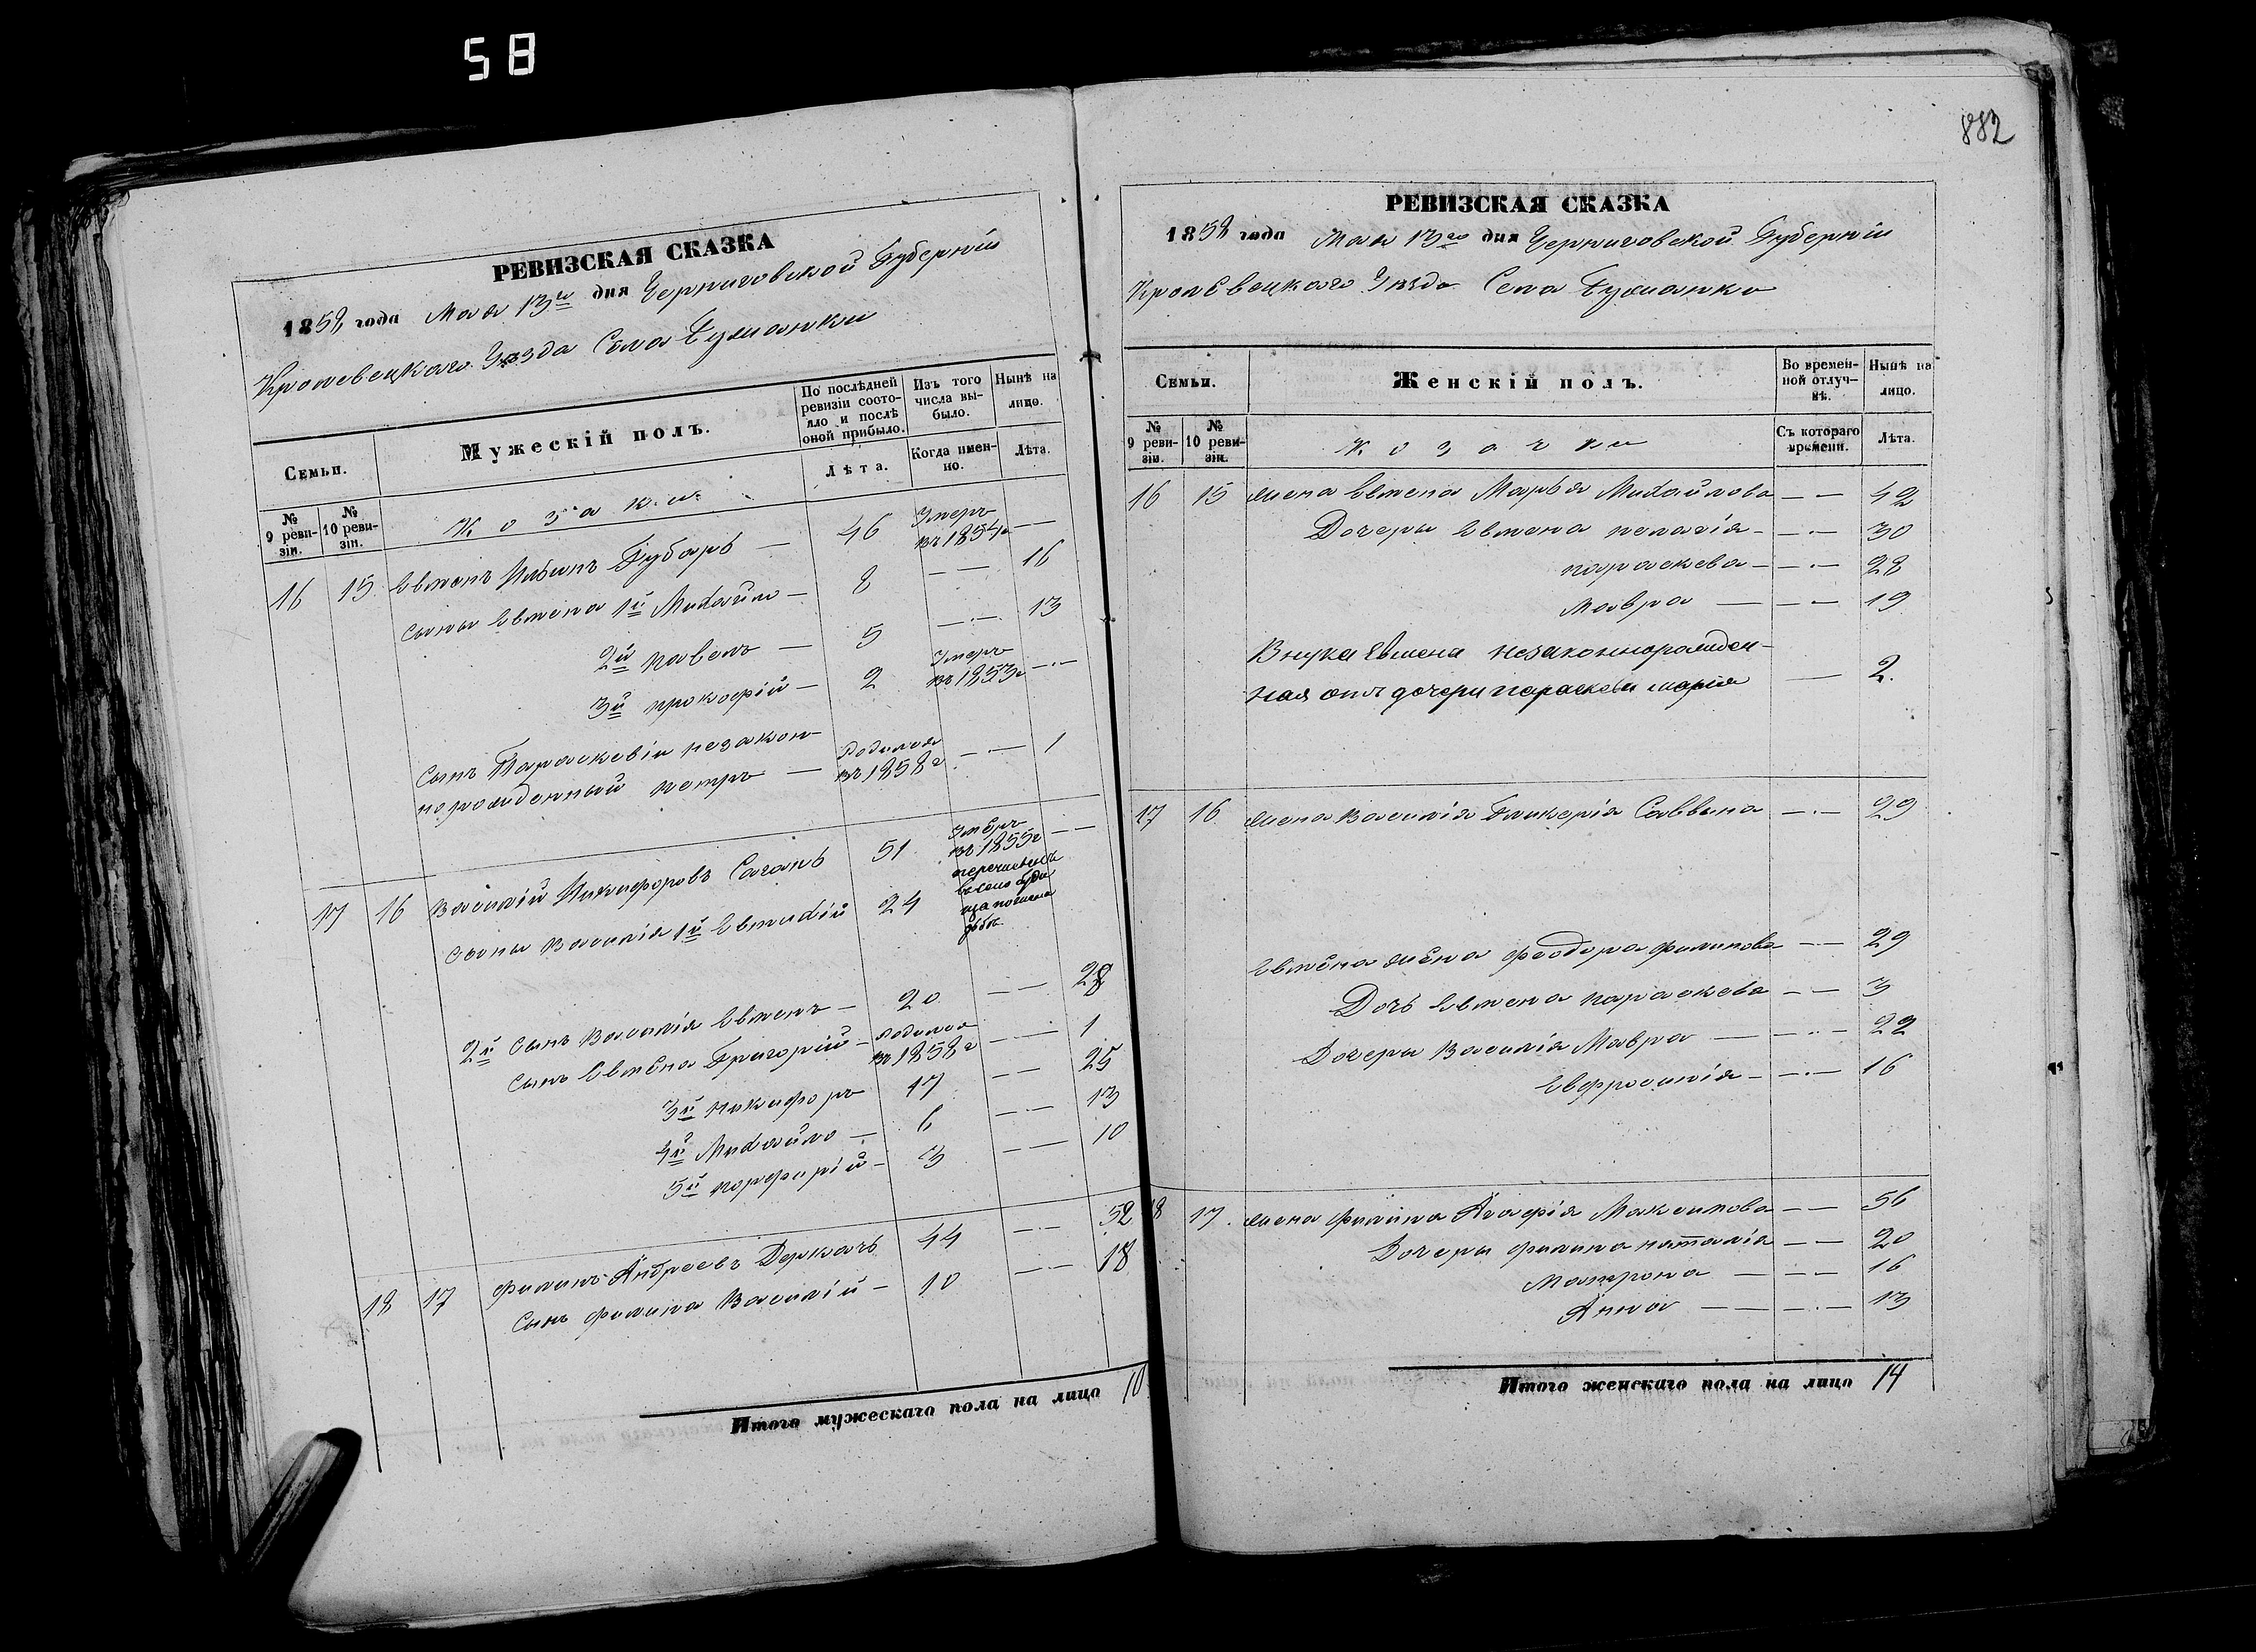 58
882
РЕВИЗСКАЯ СКАЗКА
1858 года Мая 13го дня Черниговской Губерніи
Кролевецкаго Уѣзда Села
Семьи.
Мужескій полъ.
По послѣдней ревизіи состояло и послѣ оной прибыло.
Изъ того числа выбыло.
Нынѣ на лицо.
№ 9 ревизіи.
№ 10 ревизіи.
Козаки
Лѣта.
Когда именно.
Лѣта.
16 15 Евменъ Ильинъ Губарь — 46 Умеръ въ 1854г — —
Сыны Евмена 1й Михайло — 8 — — 16
2й Павелъ — 5 — · — 13
3й Прокофій — 2 Умеръ въ 1853г — · —
Сынъ Параскевіи незакон-
норожденный Петръ — родился въ 1858г — · — 1
17 16 Василій Никифоровъ Саганъ 51 Умеръ въ 1855г — —
Сыны Василія 1й Евтихій 24 перечисленъ въ село
2й Сынъ Василія Евменъ — 20 — — 28
Сынъ Евмена Григорій — родился въ 1858г — · — 1
3й Никифоръ 17 — — 25
4й Михайло — 6 — · — 13
5й Порфирій — 3 — — 10
18 17 Филипъ Андреевъ Деркачь 44 — · — 52
Сынъ Филипа Василій — 10 — · — 18
Итого мужескаго пола на лицо 10
РЕВИЗСКАЯ СКАЗКА
1858 года Мая 13го дня Черниговской Губерніи
Кролевецкаго Уѣзда Села
Семьи.
Женскій полъ.
Во временной отлучкѣ.
Нынѣ на лицо.
№ 9 ревизіи.
№ 10 ревизіи.
Козачки
Съ котораго времени.
Лѣта.
16 15 жена Евмена Марья Михайлова — — 42
Дочери Евмена Пелагія — — · — 30
Параскева — — · — 28
Мавра — — · — 19
Внука Евмена незаконнорожден-
ная отъ дочери Параскевы Марія — 2.
17 16 жена Василія Гликерія Саввина — · — 29
Евмена жена Феодора Филипова — · — 29
Дочь Евмена Параскева — — 3
Дочери Василія Мавра — — · — 22
Евфросинія — — · — 16
18 17. жена Филипа Агафія Максимова — — 56
Дочери Филипа Наталія — — 20
Матрона — — — 16
Анна — — — · — 13
Итого женскаго пола на лицо 14